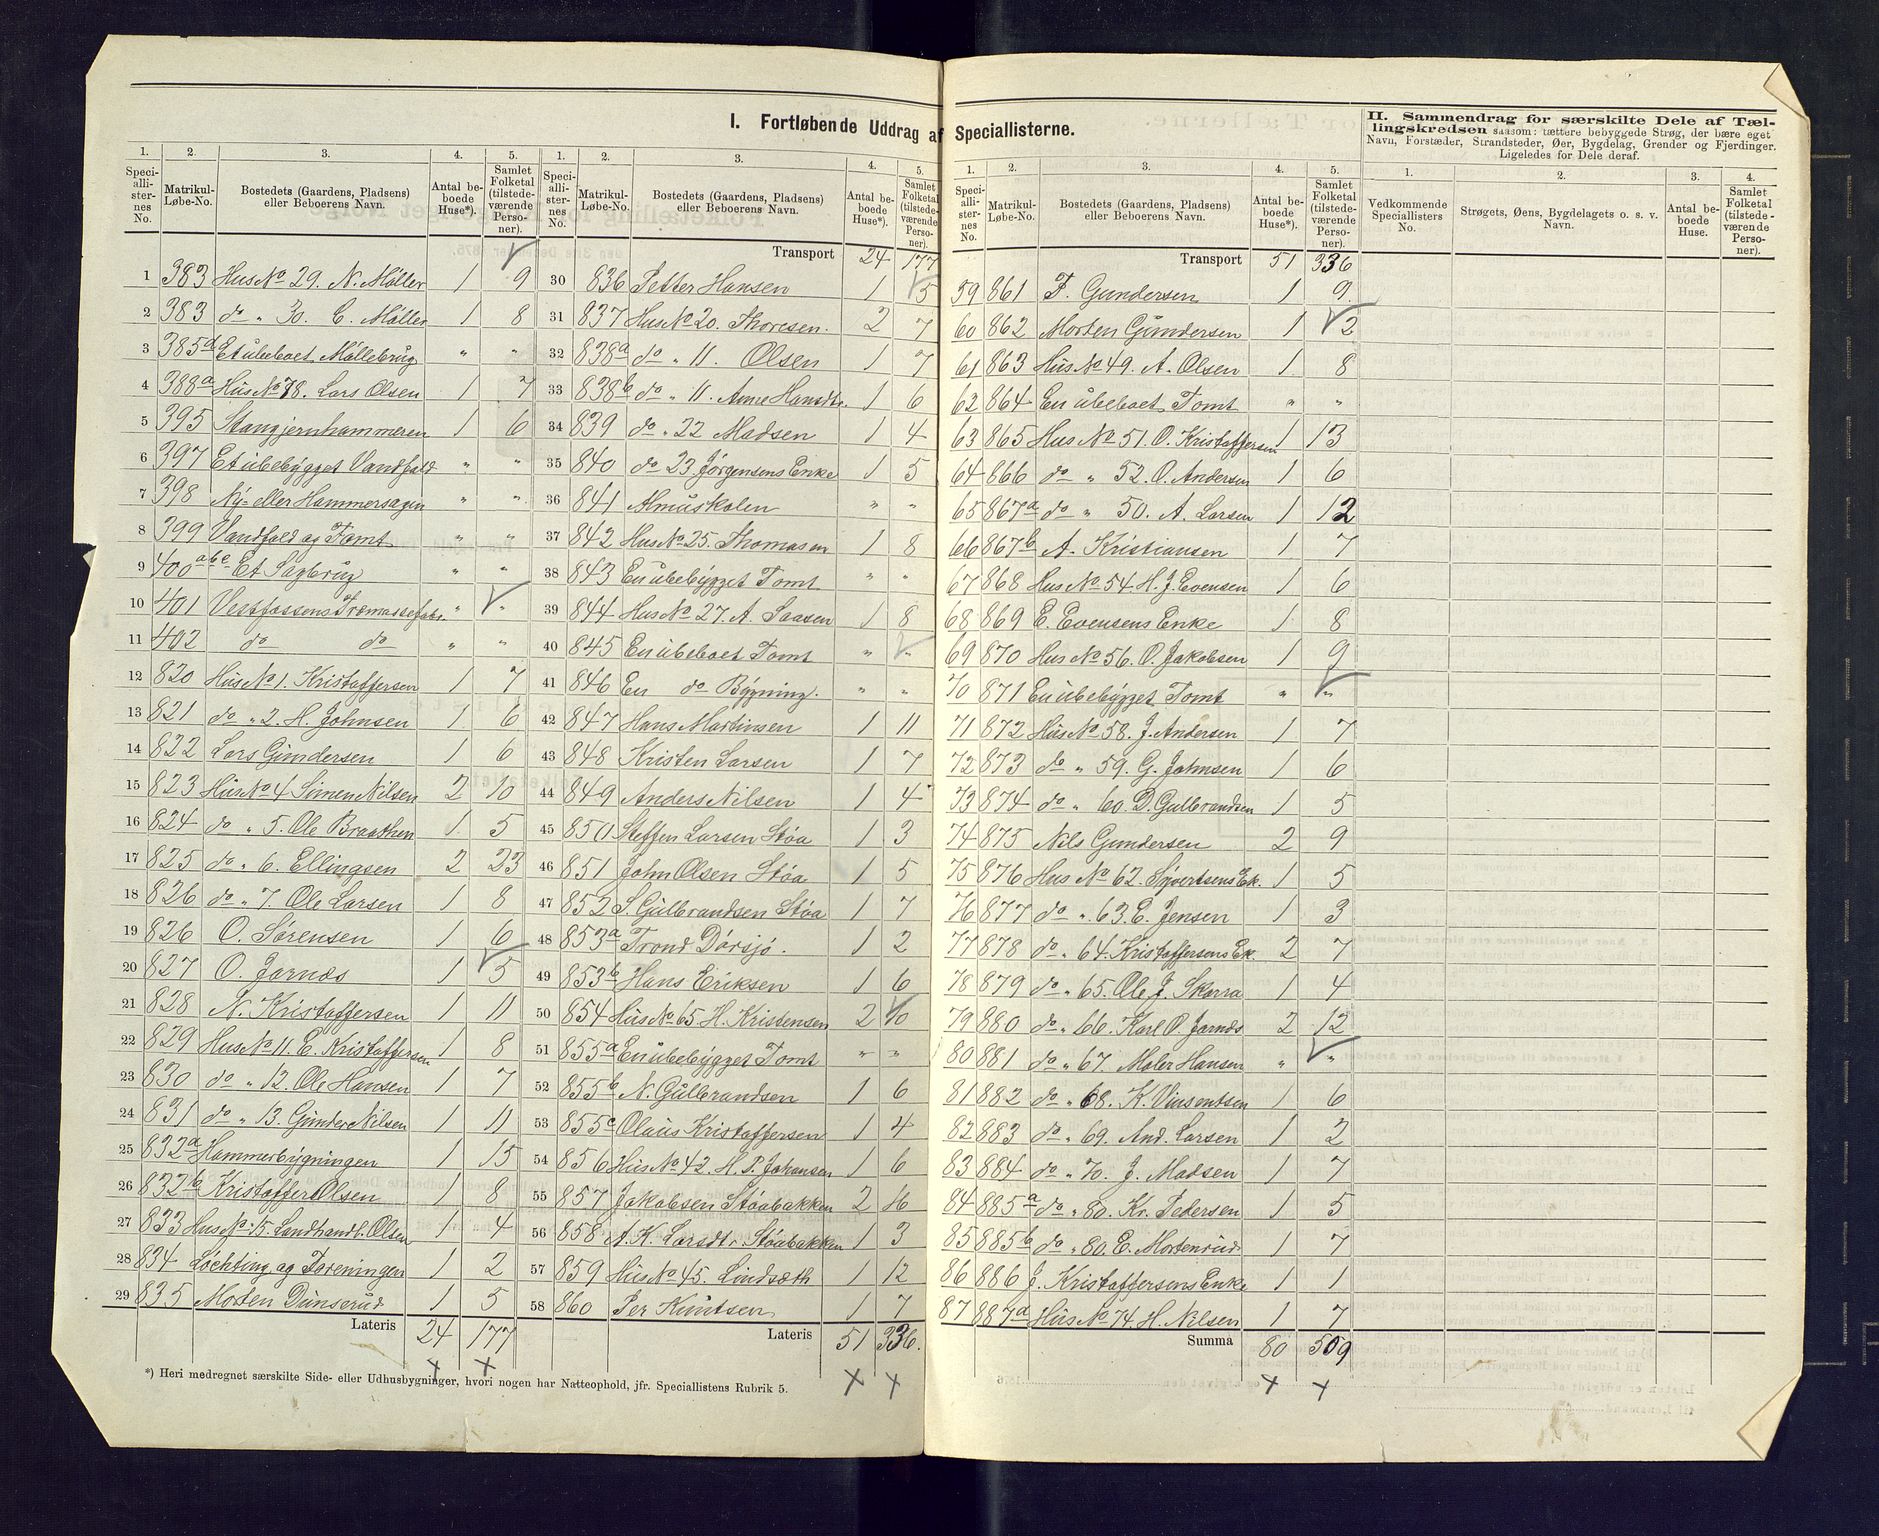 I. Fortløbende Uddrag af Speciallisterne.
1. 2. 3. 4. 5.
Speciallisternes No. Matrikul-Løbe-No. Bostedets (Gaardens, Pladsens) eller Beboerens Navn. Antal beboede Huse*). Samlet Folketal (tilstedeværende Personer).
1 383 Hus No 29. N. Møller 1 9
2 383 do " 30. C. Møller 1 8
3 385a Et ubeboet Møllebrug " "
4 388a Hus No 78. Lars Olsen 1 7
5 395 Stangjernhammeren 1 6
6 397 Et ubebygget Vandfald " "
7 398 Ny- eller Hammersagen " "
8 399 Vandfald og Tomt " "
9 400abc Et Sagbrug " "
10 401 Vestfossens Træmassefabr. " "
11 402 do do " "
12 820 Hus No 1. Kristoffersen 1 7
13 821 do " 2. H. Johnsen 1 6
14 822 Lars Gundersen 1 6
15 823 Hus No 4 Simen Nilsen 2 10
16 824 do " 5. Ole Braathen 1 5
17 825 do " 6. Ellingsen 2 23
18 826 do " 7. Ole Larsen 1 8
19 826 O. Sørensen 1 6
20 827 O. Jarnæs 1 5
21 828 N. Kristoffersen 1 11
22 829 Hus No 11. E. Kristoffersen 1 8
23 830 do " 12. Ole Hansen 1 7
24 831 do " 13. Gunder Nilsen 1 11
25 832a Hammerbygningen 1 15
26 832b Kristoffer Olsen 1 8
27 833 Hus No 15. Landhandl. Olsen 1 4
28 834 Løchting og Foreningen 1 2
29 835 Morten Dunserud 1 5
Lateris 24 177
*) Heri medregnet særskilte Side- eller Udhusbygninger, hvori nogen har Natteophold, jfr. Speciallistens Rubrik 5.
1. 2. 3. 4. 5.
Speciallisternes No. Matrikul-Løbe-No. Bostedets (Gaardens, Pladsens) eller Beboerens Navn. Antal beboede Huse*). Samlet Folketal (tilstedeværende Personer).
Transport 24 177
30 836 Petter Hansen 1 5
31 837 Hus No 20. Thoresen. 2 7
32 838a do " 11. Olsen 1 7
33 838b do " 11. Anne Hansdtr. 1 6
34 839 do " 22 Madsen 1 4
35 840 do 23. Jørgensens Enke 1 5
36 841 Almuskolen " "
37 842 Hus No 25. Thomasen 1 8
38 843 En ubebygget Tomt " "
39 844 Hus No 27. A. Saasen 1 8
40 845 En ubeboet Tomt " "
41 846 En do Bygning. " "
42 847 Hans Martinsen 1 11
43 848 Kristen Larsen 1 7
44 849 Anders Nilsen 1 4
45 850 Steffen Larsen Støa 1 3
46 851 John Olsen Støa 1 5
47 852 S. Gulbrandsen Støa 1 7
48 853a Trond Dørsjø. 1 2
49 853b Hans Eriksen 1 6
50 854 Hus No 65 H. Kristensen 2 10
51 855a En ubebygget Tomt " "
52 855b N. Gulbrandsen 1 6
53 855c Olaus Kristoffersen 1 4
54 856 Hus No 42. H. P. Johansen 1 6
55 857 Jakobsen Støabakken 2 16
56 858 A. K. Larsdtr Støabakken 1 3
57 859 Hus No 45. Lindsæth 1 12
58 860 Per Knutsen 1 7
Lateris 51 336.
1. 2. 3. 4. 5.
Speciallisternes No. Matrikul-Løbe-No. Bostedets (Gaardens, Pladsens) eller Beboerens Navn. Antal beboede Huse*). Samlet Folketal (tilstedeværende Personer).
Transport 51 336
59 861 F. Gundersen 1 9
60 862 Morten Gundersen 1 2
61 863 Hus No 49. A. Olsen 1 8
62 864 En ubeboet Tomt " "
63 865 Hus No 51. O. Kristoffersen 1 13
64 866 do " 52. O. Andersen 1 6
65 867a do " 50. A. Larsen 1 12
66 867b A. Kristiansen 1 7
67 868 Hus No 54. H. J. Evensen 1 6
68 869 E. Evensens Enke 1 8
69 870 Hus No 56. O. Jakobsen 1 9
70 871 En ubebygget Tomt " "
71 872 Hus No 58. J. Andersen 1 7
72 873 do " 59. G. Johnsen 1 6
73 874 do " 60. D. Gulbrandsen 1 5
74 875 Nils Gundersen 2 9
75 876 Hus No 62. Syvertsens Ek. 1 5
76 877 do " 63. E. Jensen 1 3
77 878 do " 64. Kristoffersens Ek. 2 7
78 879 do " 65. Ole J. Skarra 1 4
79 880 do " 66. Karl O. Jarnæs 2 12
80 881 do " 67. Maler Hansen " "
81 882 do " 68. K. Vinsentsen 1 6
82 883 do " 69. And. Larsen 1 2
83 884 do " 70. J. Madsen 1 7
84 885a do " 80. Kr. Pedersen 1 5
85 885b do " 80. E. Mortenrud 1 7
86 886 J. Kristoffersens Enke 1 1
87 887a Hus No 74. H. Nilsen 1 7
Summa 80 509
II. Sammendrag for særskilte Dele af Tællingskredsen saasom: tættere bebyggede Strøg, der bære eget Navn, Forstæder, Strandsteder, Øer, Bygdelag, Grender og Fjerdinger. Ligeledes for Dele deraf.
1. 2. 3. 4.
Vedkommende Speciallisters No. Strøgets, Øens, Bygdelagets o. s. v. Navn. Antal beboede Huse. Samlet Folketal (tilstedeværende Personer).